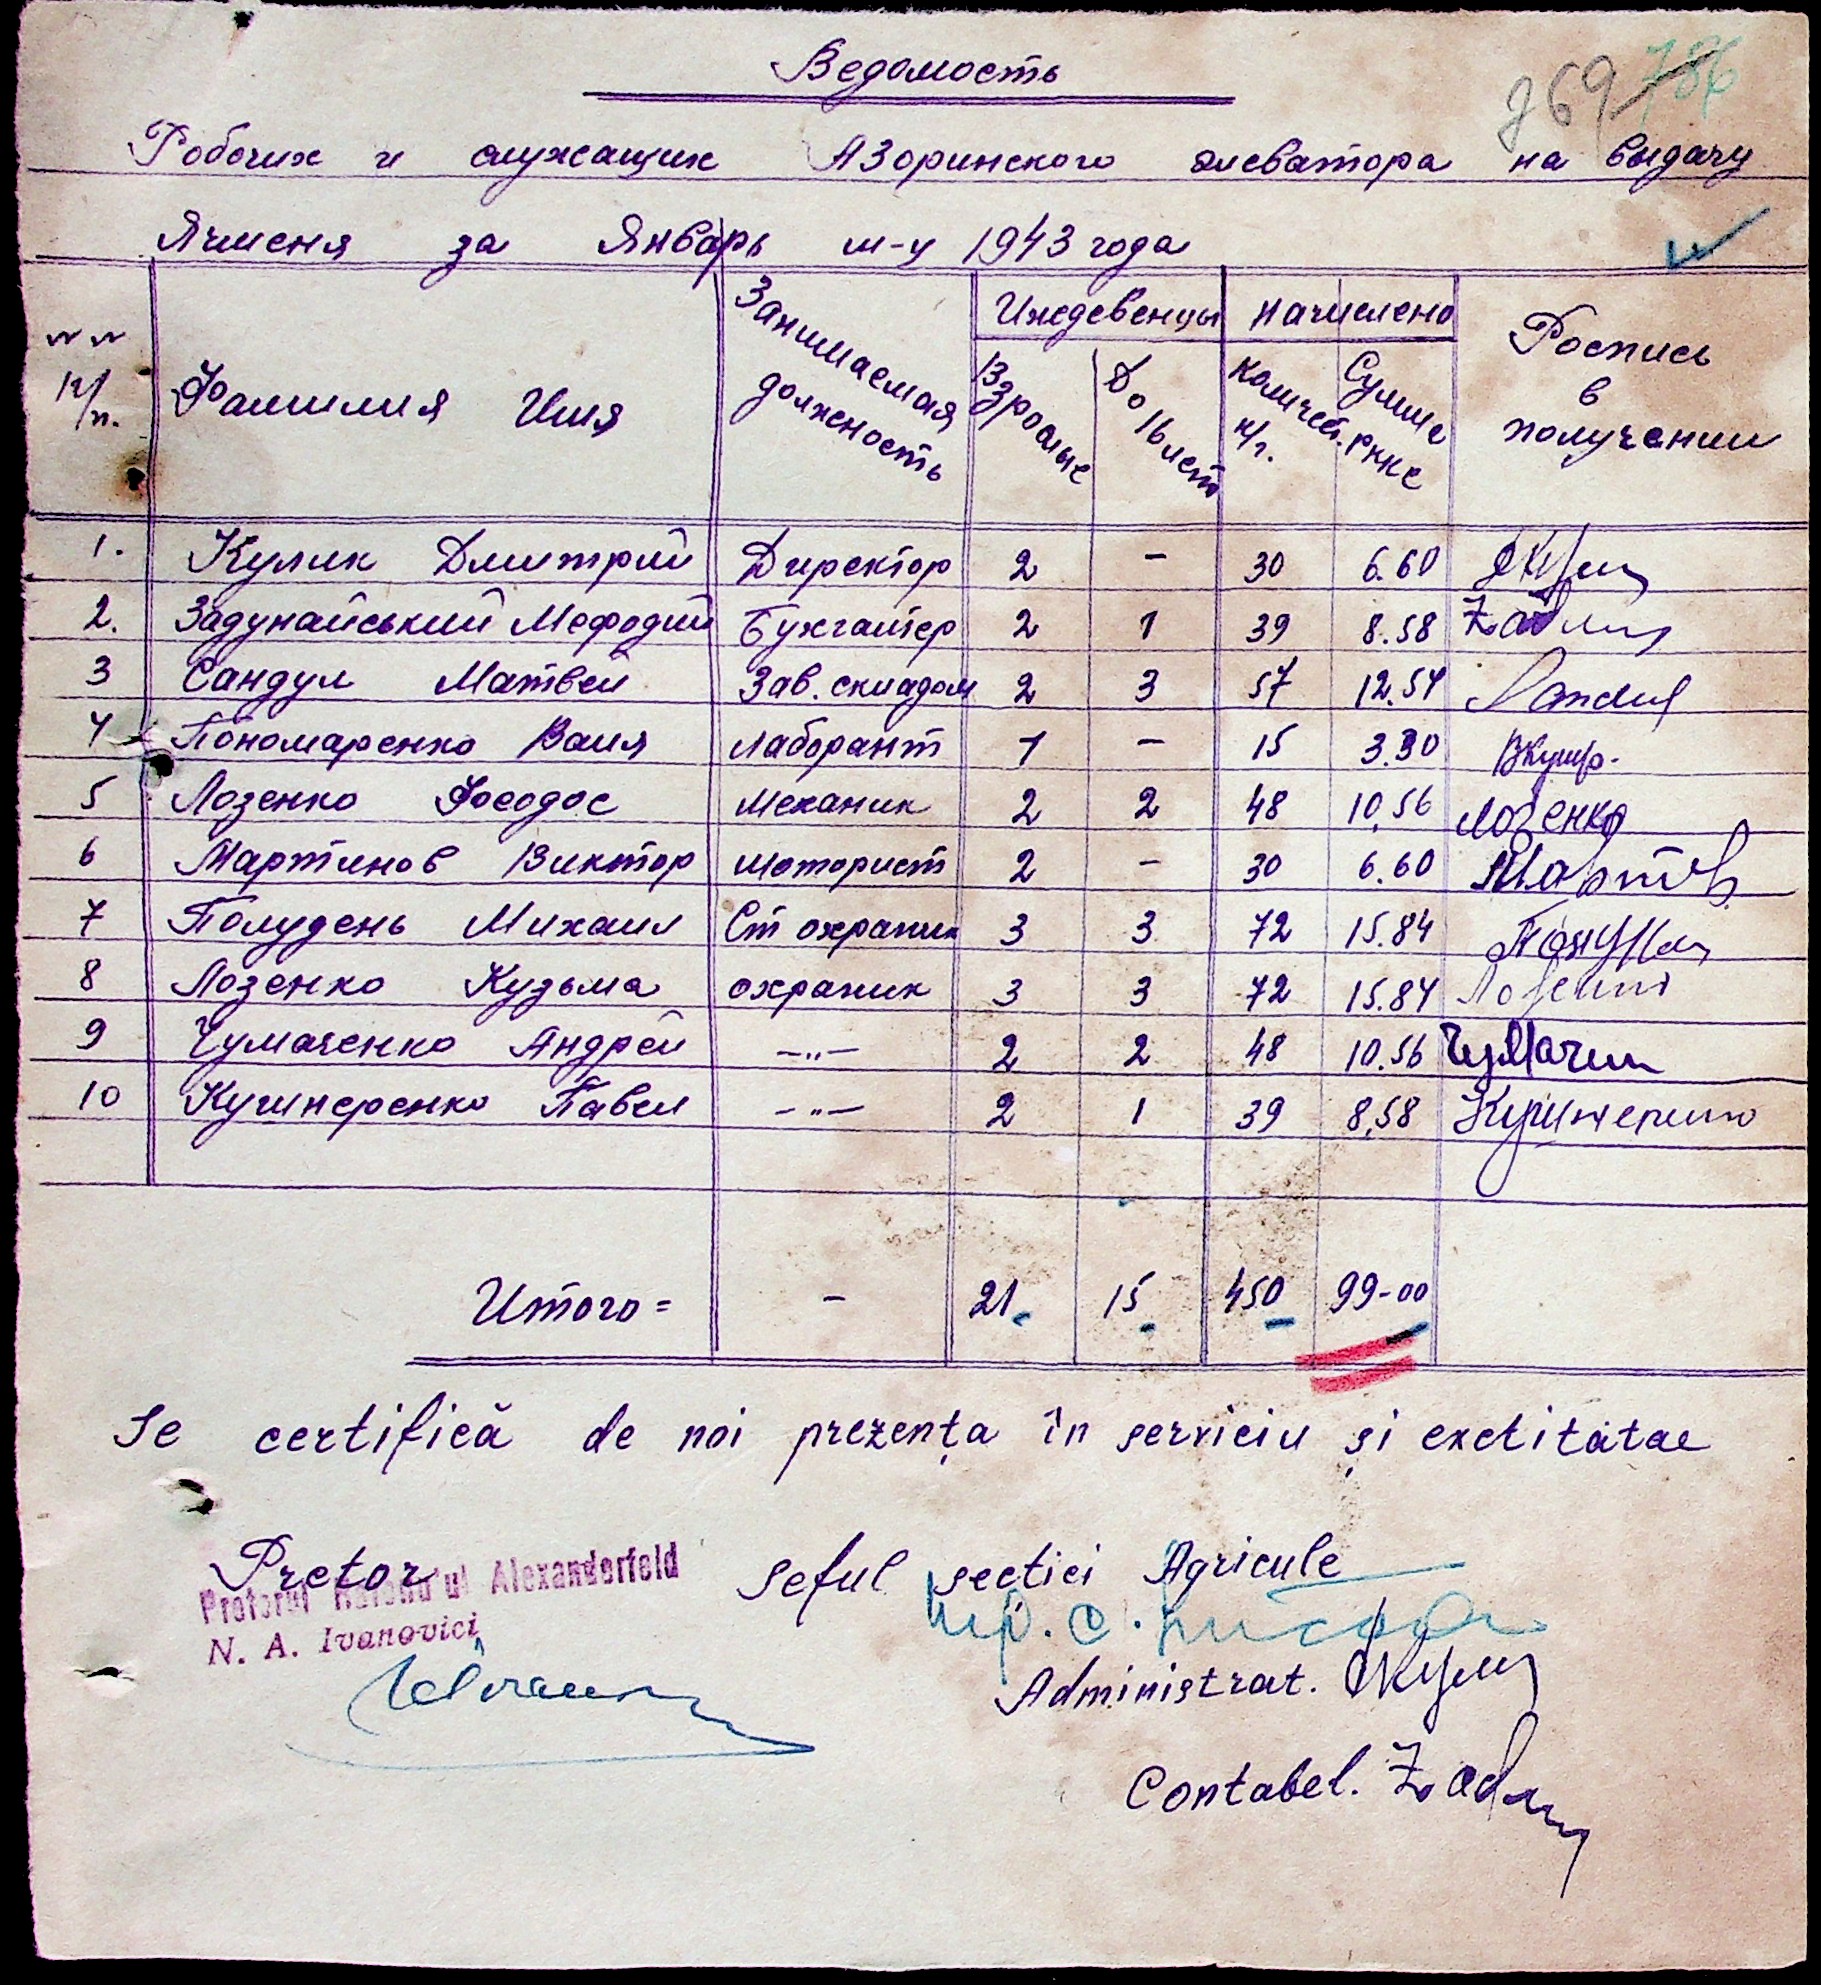 Ведомость
269 786
Робочих и служащих Азоринского элеватора на выдачу
Ячменя за Январь м-ц 1943 года
№№ п/п. Фамилия Имя Занимаемая должность Иждевенцы Начислено Роспись в получении
Взрослые До 16 лет Количест. к/г. Сумма РККС
1. Кулик Дмитрий Директор 2 - 30 6.60
2. Задунайський Мефодий Бухгалтер 2 1 39 8.58
3 Сандул Матвей Зав. складом 2 3 57 12.54 Sandul
4 Пономаренко Валя Лаборант 1 - 15 3.30
5 Лозенко Феодос Механик 2 2 48 10,56 Лозенко
6 Мартинов Виктор Моторист 2 - 30 6.60
7 Полудень Михаил Ст охраник 3 3 72 15.84
8 Лозенко Кузьма охраник 3 3 72 15.84
9 Чумаченко Андрей —"— 2 2 48 10.56
10 Кушнеренко Павел —"— 2 1 39 8,58
Итого = - 21 15 450 99-00
Se certifică de noi prezența în serviciu și exctitatae
Pretor Seful secției Agricule
Pretorul Raionu'ul Alexanderfeld
N. A. Ivanovici
Administrat.
Contabel.